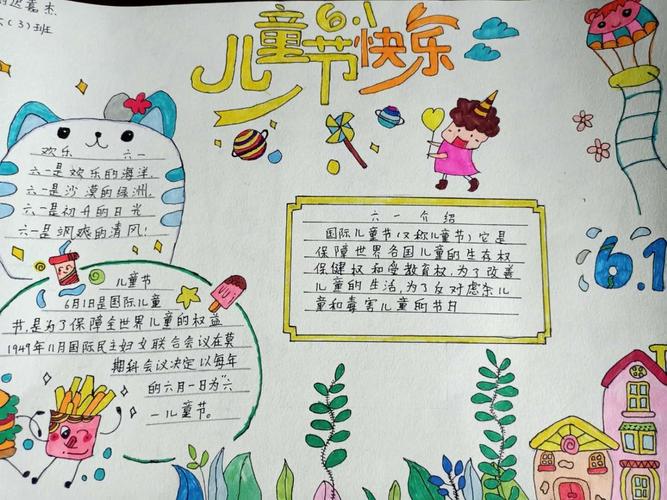 迟嘉杰
(3)班
6.1
儿童节快乐
欢乐 六一
六一是欢乐的海洋,
六一是沙漠的绿洲,
六一是初升的日光
六一是飒爽的清风!
六一介绍
国际儿童节(又称儿童节)它是
保障世界各国儿童的生存权
保健权和受教育权,为了改善
儿童的生活,为了反对虑杀儿
童和毒害儿童的节日
6.1
儿童节
6月1日是国际儿童
节,是为了保障全世界儿童的权益
1949年11月国际民主妇女联合会议在莫
期科会议决定以每年
的六月一日为"六
一儿童节。